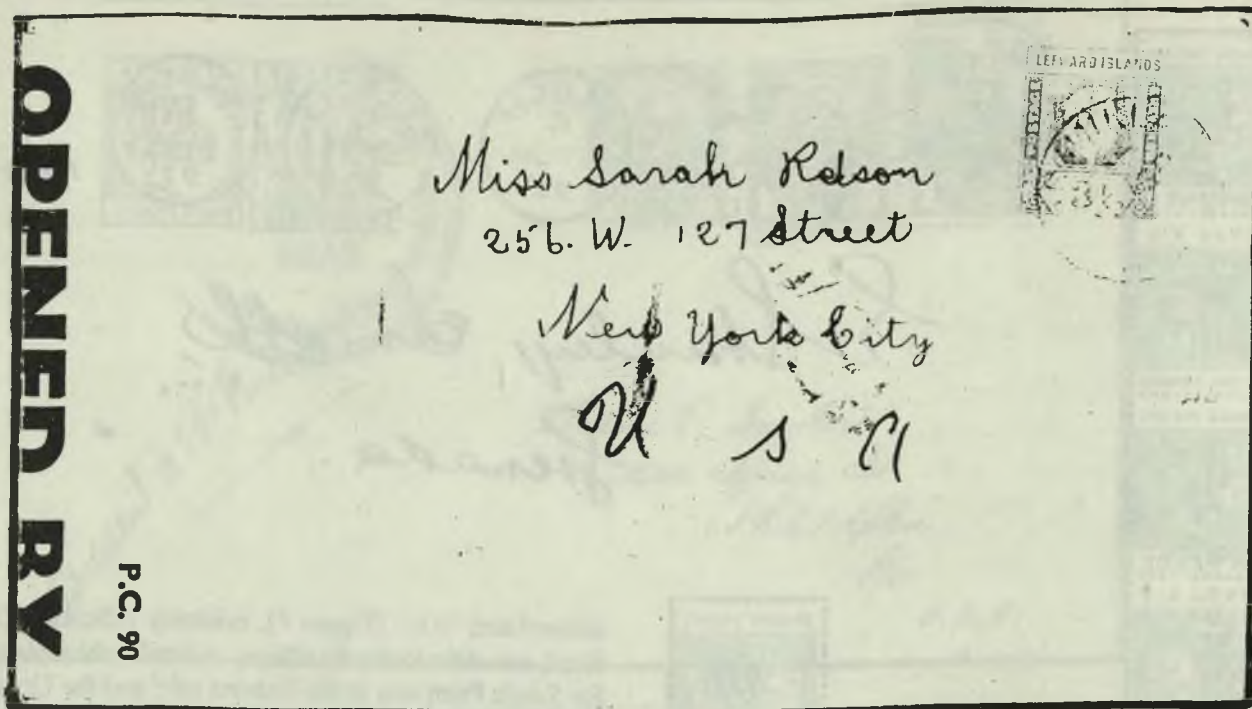 OPENED BY
P.C. 90
LEEWARD ISLANDS
Miss Sarah Rdson
256. W. 127 Street
New York City
U S A